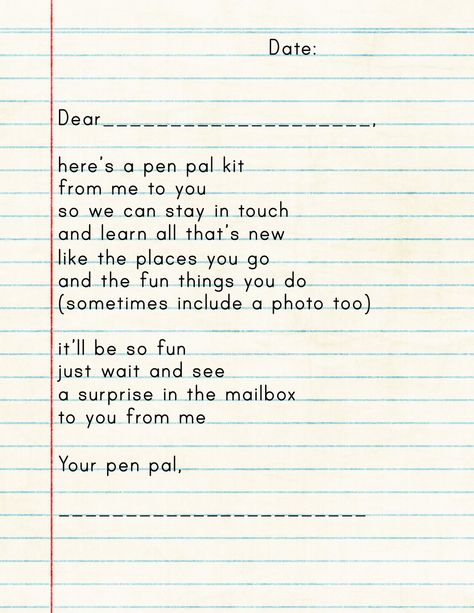 Date:
Dear____________________,
here's a pen pal kit
from me to you
so we can stay in touch
and learn all that's new
like the places you go
and the fun things you do
(sometimes include a photo too)
it'll be so fun
just wait and see
a surprise in the mailbox
to you from me
Your pen pal,
_______________________